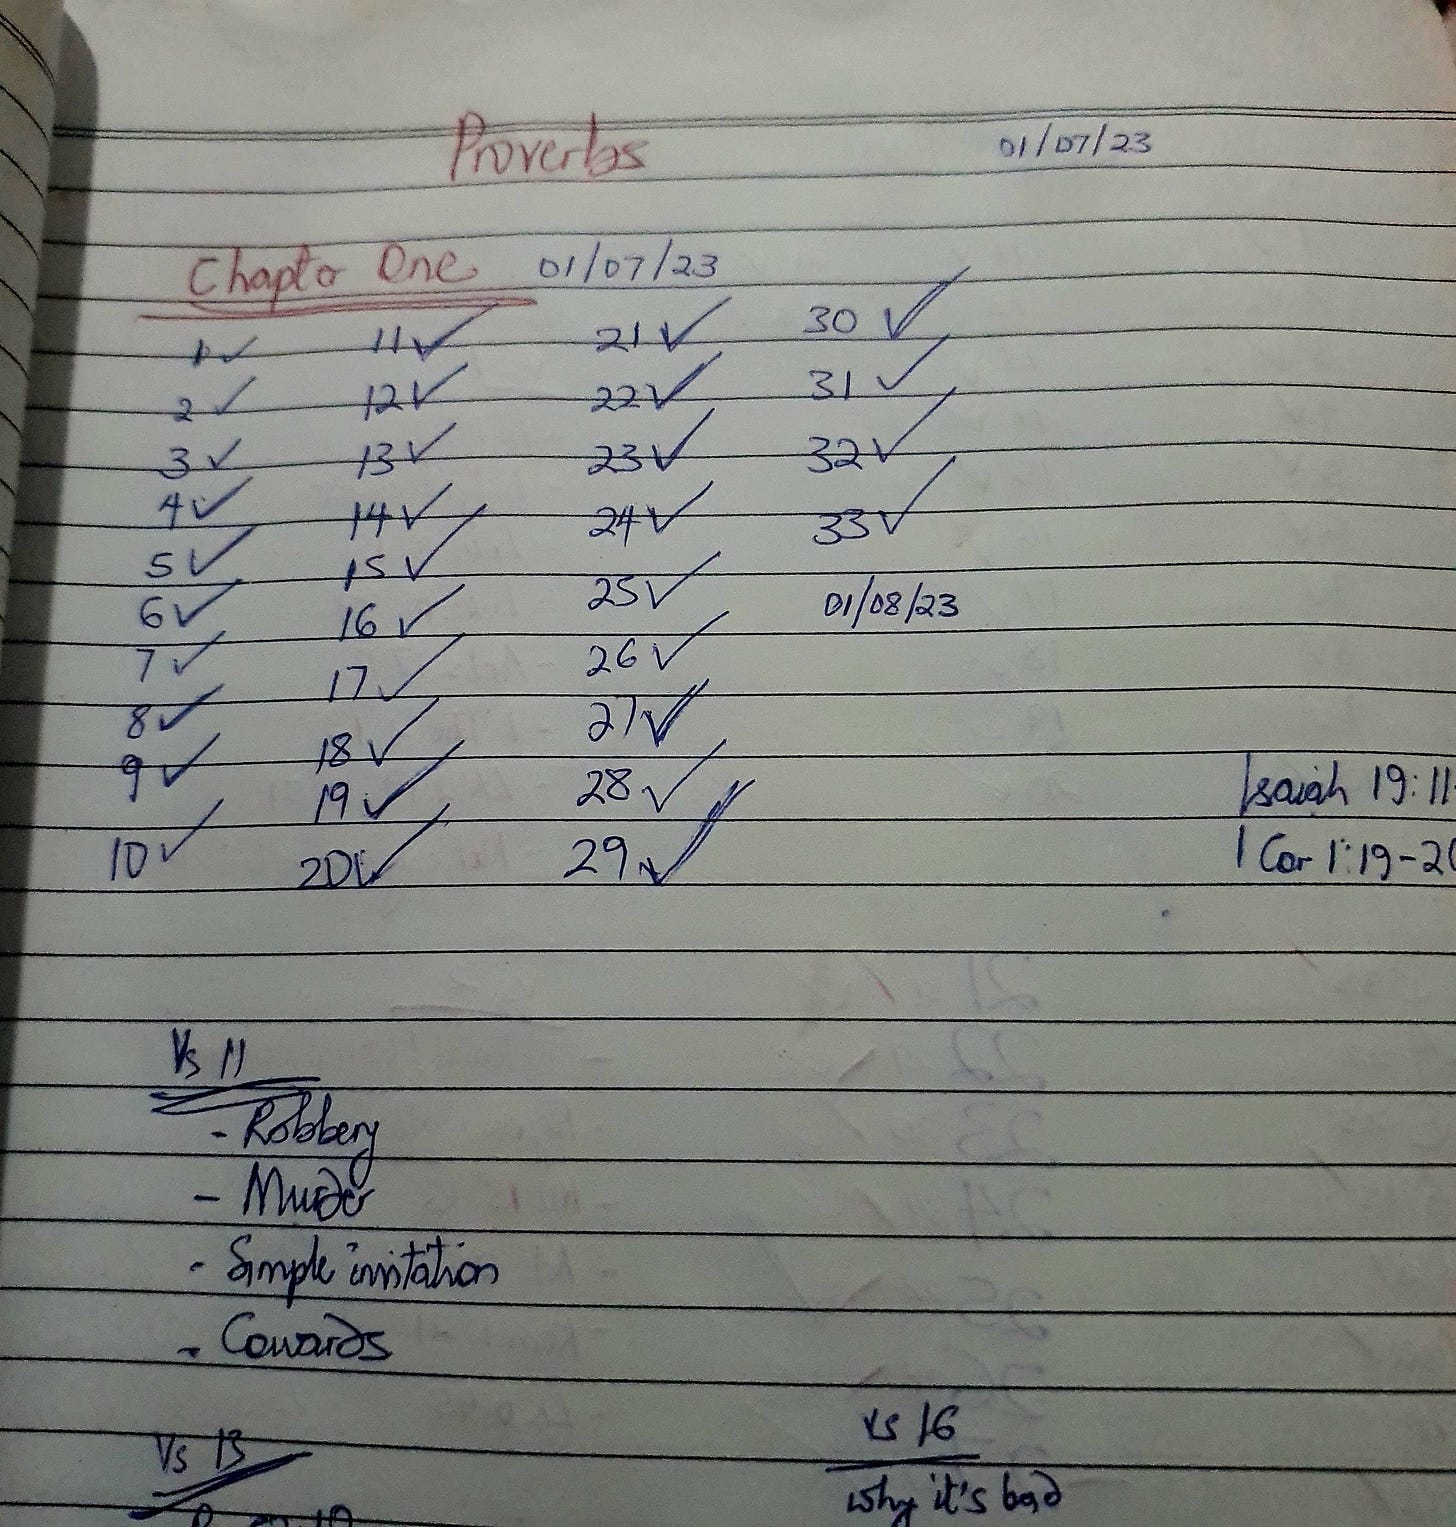 Proverbs 01/07/23
Chapter One 01/07/23
1 ✓ 11 ✓ 21 ✓ 30 ✓
2 ✓ 12 ✓ 22 ✓ 31 ✓
3 ✓ 13 ✓ 23 ✓ 32 ✓
4 ✓ 14 ✓ 24 ✓ 33 ✓
5 ✓ 15 ✓ 25 ✓ 01/08/23
6 ✓ 16 ✓ 26 ✓
7 ✓ 17 ✓ 27 ✓
8 ✓ 18 ✓ 28 ✓
9 ✓ 19 ✓ 29 ✓
10 ✓ 20 ✓
Isaiah 19:11
1 Cor 1:19-20
Vs 11
- Robbery
- Murder
- Simple invitation
- Cowards
Vs 13
vs 16
why it's bad